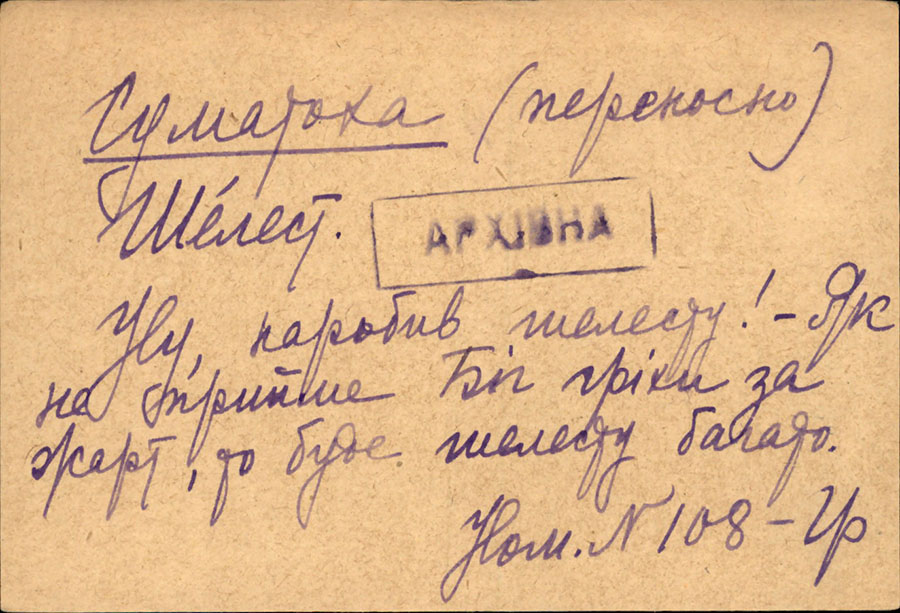 Суматоха (переносно)
Ше́лест.
АРХІВНА
Ну, наробив шелесту! – Як
не прийме Біг гріхи за
жарт, то буде шелесту багато.
Ном. N 108 – Гр